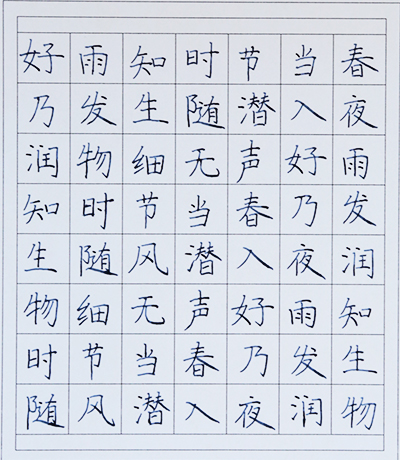 好雨知时节当春
乃发生随潜入夜
润物细无声好雨
知时节当春乃发
生随风潜入夜润
物细无声好雨知
时节当春乃发生
随风潜入夜润物